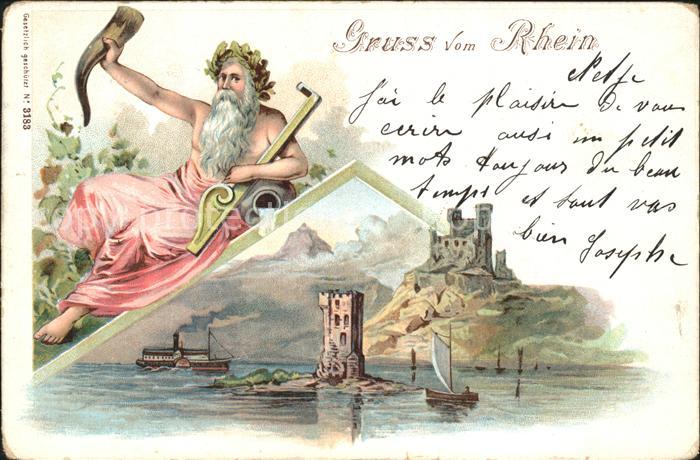 Gruss vom Rhein
Gesetzlich geschützt Nº 3183
J'ai le plaisir de vous
ecrire ausi un petit
mots toujour du beau
temps et tout vas
bien Josephe